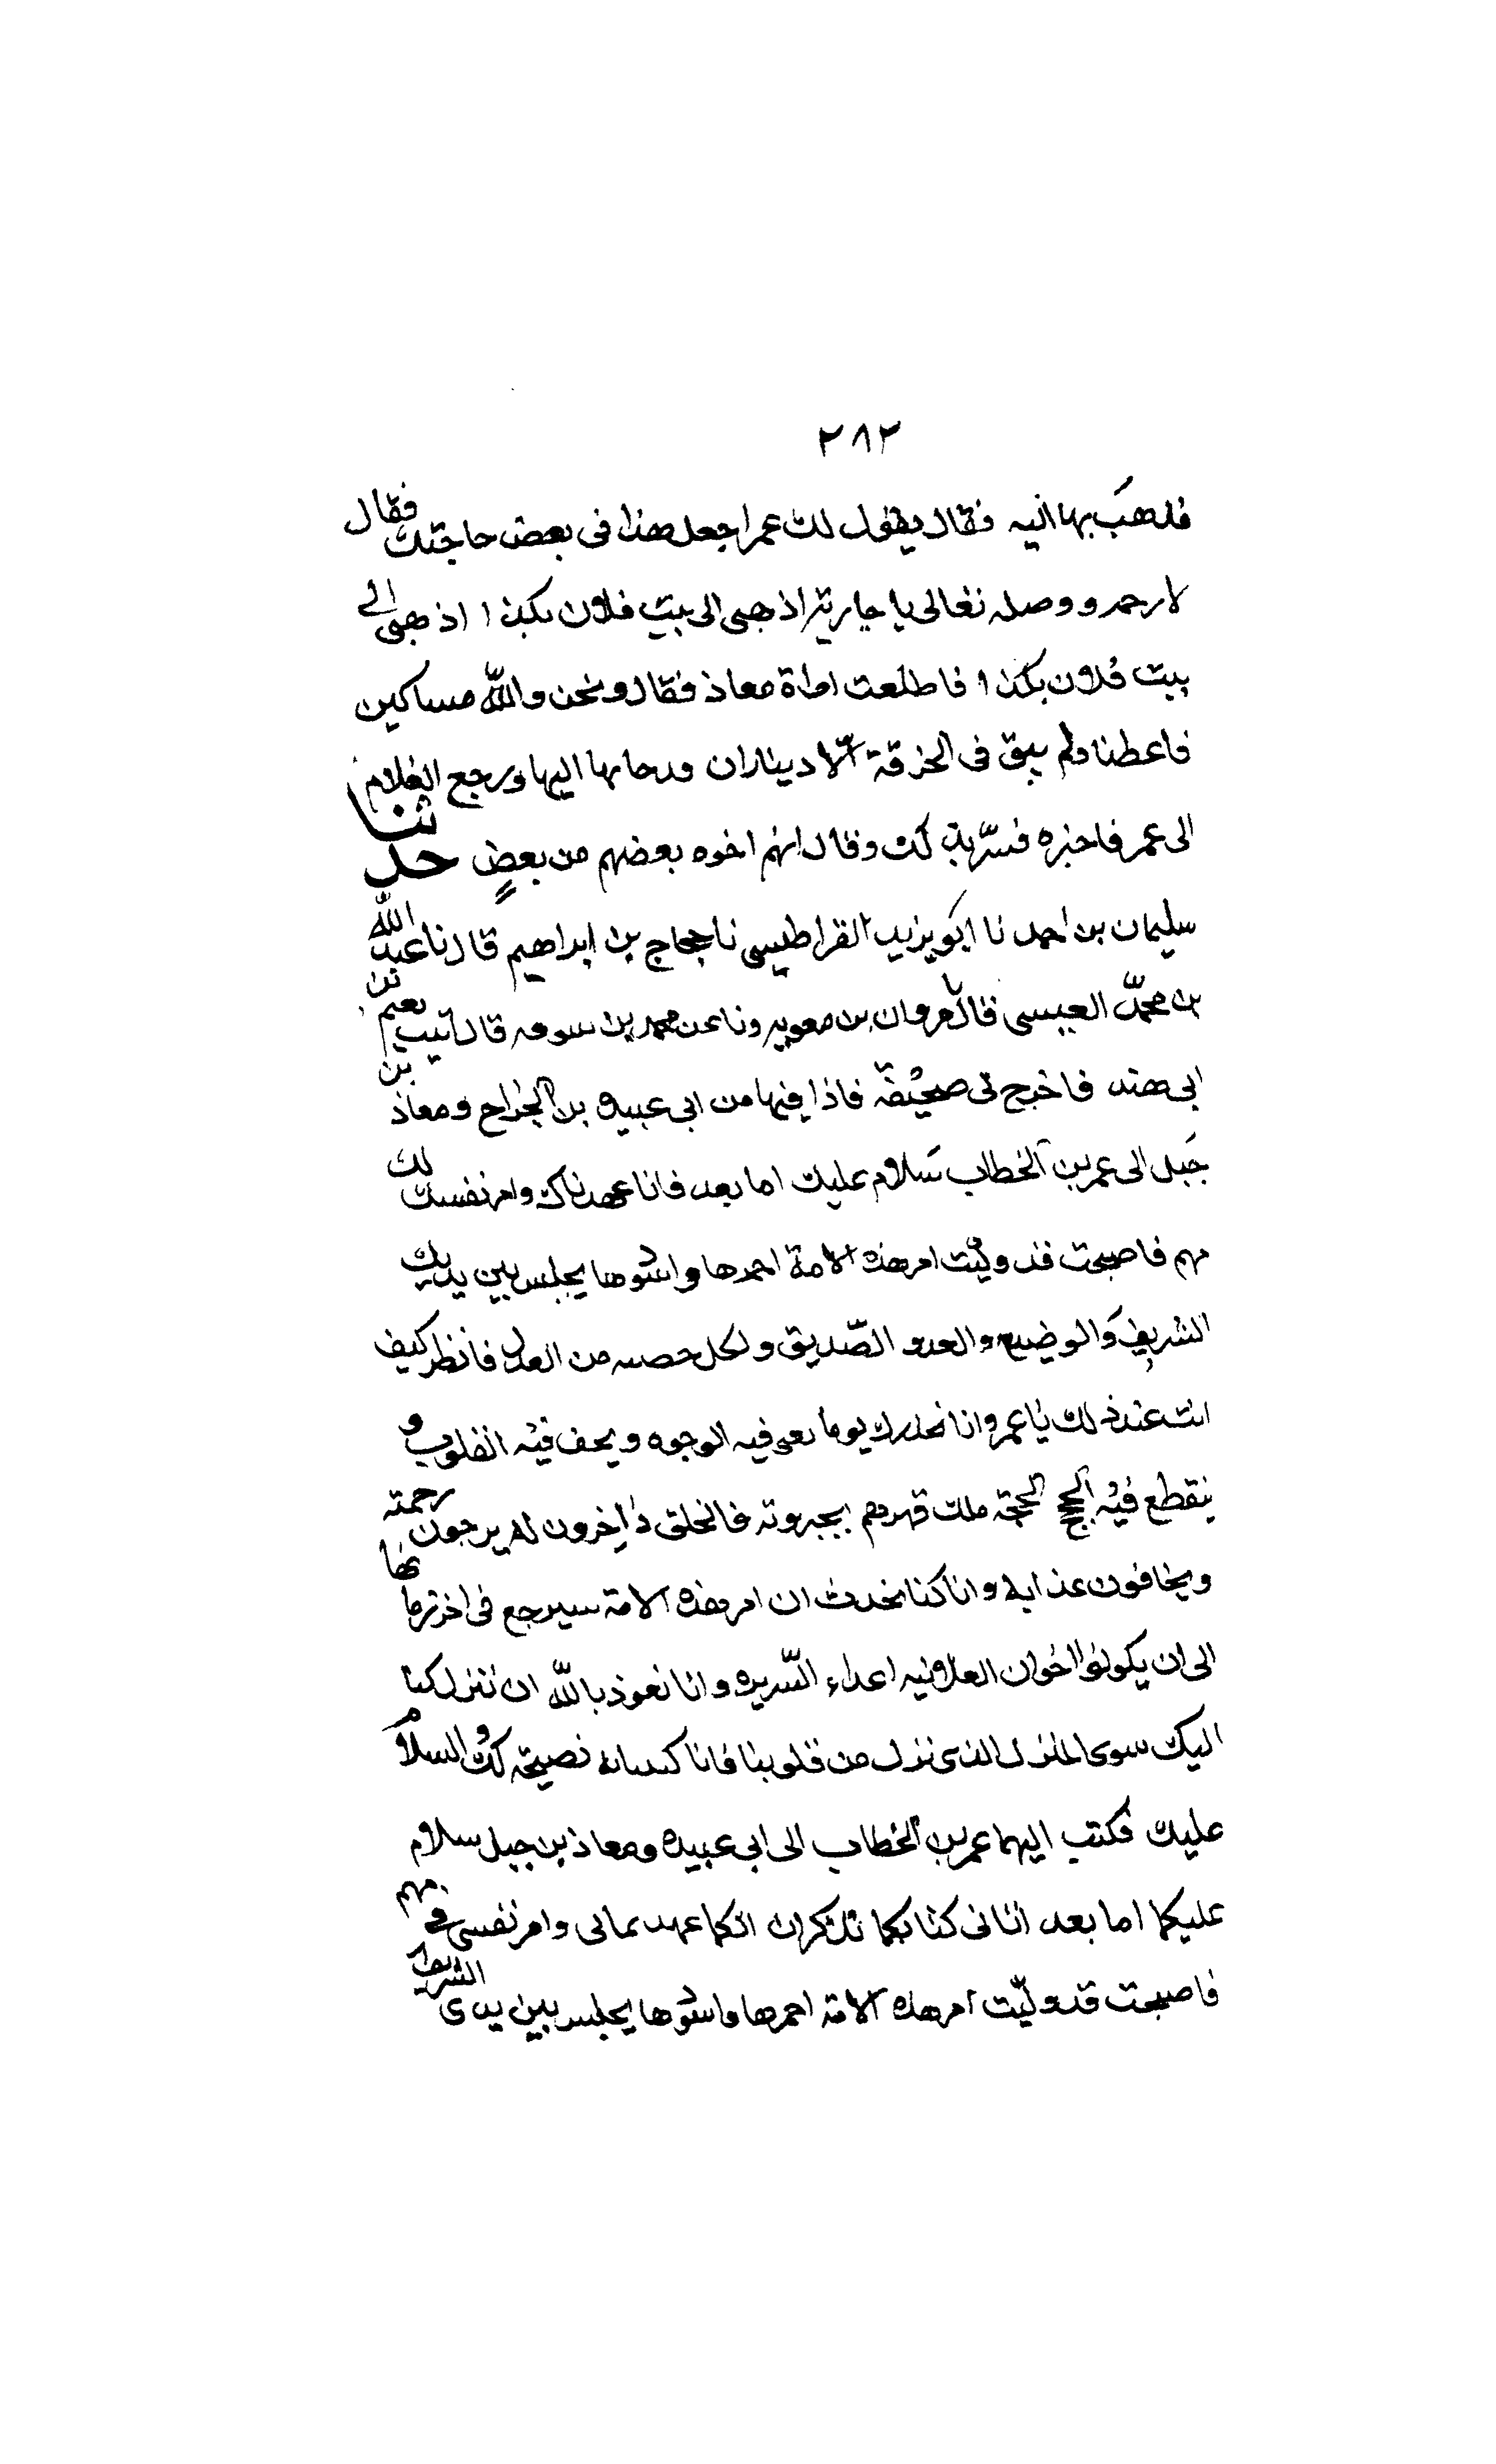 ٢٨٢
فذهب بها اليه فقال يقول لك عمر اجعل هذا فى بعض حاجتك فقال
لا رحمه ووصله تعالى يا جارية اذهبى الى بيت فلان بكذا اذهبى الى
بيت فلان بكذا فاطلعت امراة معاذ فقال ونحن والله مساكين
فاعطنا ولم يبق فى الخرقة الّا ديناران فدحا بها اليها ورجع الغلام
الى عمر فاخبره فسّر بذلك وقال انهم اخوه بعضهم من بعضٍ حدثنا
سليمان بن احمد نا ابو يزيد القراطيسى نا حجاج بن ابراهيم قال نا عبد الله
بن محمّد العبسى قال نا مروان بن معويه ونا عن محمد بن سوقه قال اتيت نعيم بن
ابى هند فاخرج لى صحيفة فاذا فيها من ابى عبيده بن الجراح ومعاذ بن
جَبل الى عمر بن الخطاب سَلام عليك اما بعد فانا عهدناك وامر نفسك لك
مهم فاصبحت قد وليت امر هذه الامة احمرها واسودها يجلس بين يديك
الشريف والوضيع والعدو الصّديق ولكل حصه من العدل فانظر كيف
انت عند ذلك يا عمر وانا نحذرك يوما تعى فيه الوجوه ويجف فيه القلوب و
ينقطع فيه الحجج الحجة ملك قهرهم بجبروته فالخلق داخرون له يرجون رحمته
ويخافون عذابه وانا كنا نحدث ان امر هذه الامة سيرجع فى اخر زمانها
الى ان يكونوا اخوان العلانيه اعداء السّريره وانا نعوذ بالله ان ننزل كتبا
اليك سوى المنزل الذى نزل من قلوبنا فانا كتبنا به نصيحة لك والسلام
عليك فكتب اليهما عمر بن الخطاب الى ابى عبيده ومعاذ بن جبل سلام
عليكما اما بعد اتانى كتابكما تذكران انكما عهدتمانى وامر نفسى لى مهم
فاصبحت قد وليّت امر هذه الامة احمرها واسودها يجلس بين يدى الشريف